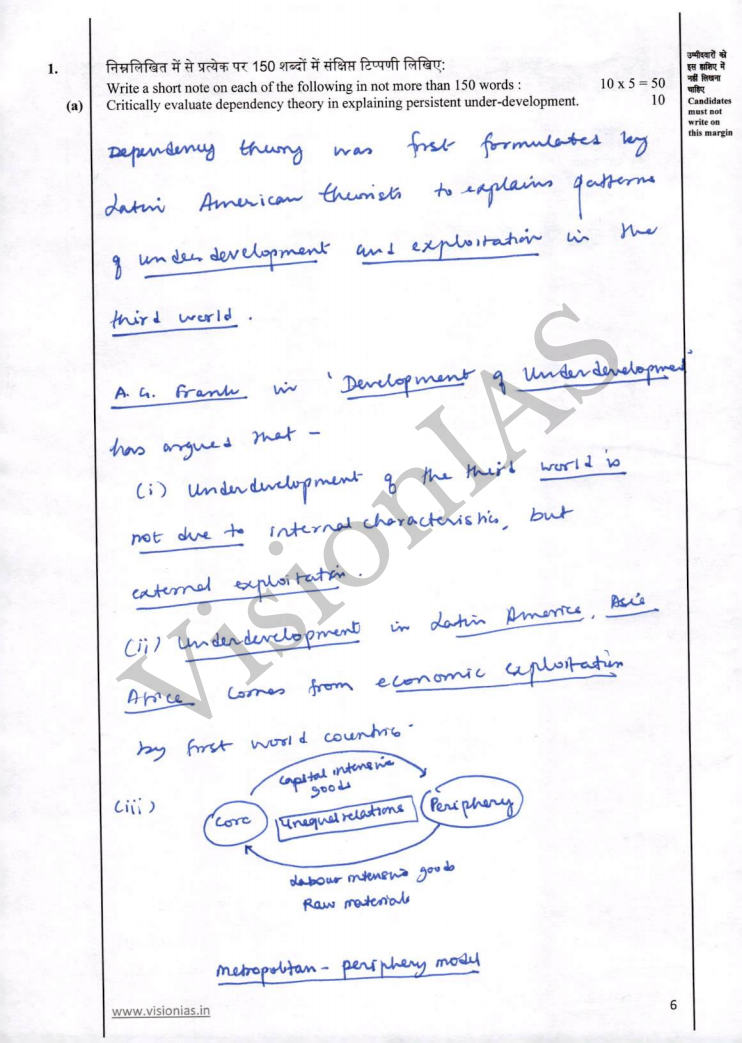 1.
निम्नलिखित में से प्रत्येक पर 150 शब्दों में संक्षिप्त टिप्पणी लिखिए:
Write a short note on each of the following in not more than 150 words : 10 x 5 = 50
(a) Critically evaluate dependency theory in explaining persistent under-development. 10
उम्मीदवारों को
इस हाशिए में
नहीं लिखना
चाहिए
Candidates
must not
write on
this margin
Dependency theory was first formulated by
Latin American theorists to explains patterns
of under development and exploitation in the
third world.
A. G. Frank in 'Development of Underdevelopment'
has argued that -
(i) Underdevelopment of the third world is
not due to internal characteristics, but
external exploitation.
(ii) Underdevelopment in Latin America, Asia
Africa comes from economic exploitation
by first world countries.
(iii)
Capital intensive
goods
Core
Unequal relations
Periphery
Labour intensive goods
Raw materials
Metropolitan - periphery model
VisionIAS
www.visionias.in
6